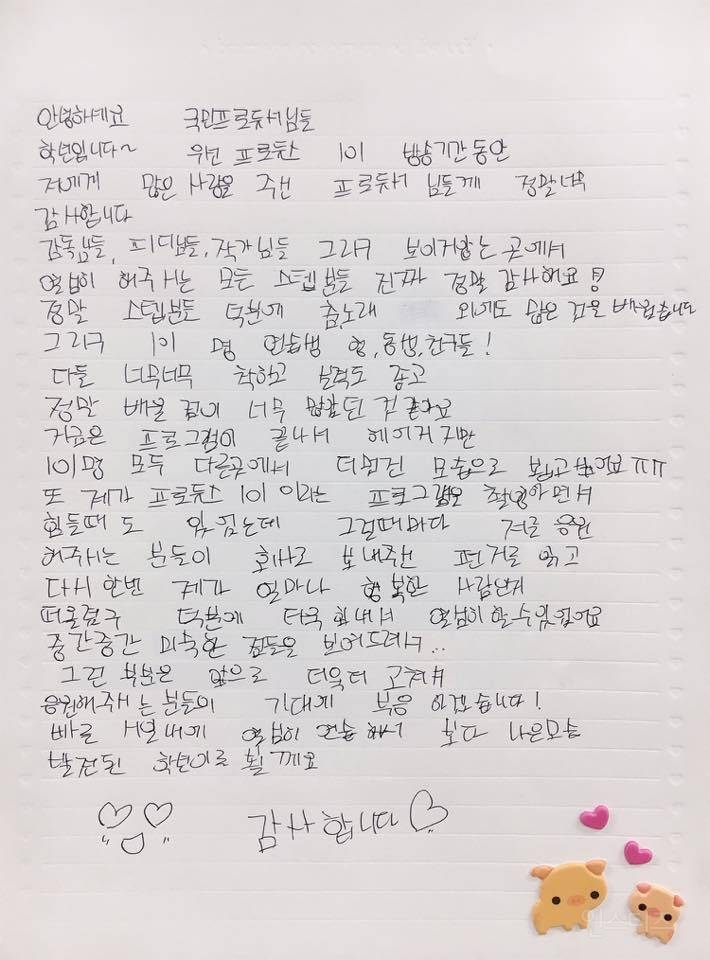 안녕하세요 국민프로듀서님들
학년입니다~ 우선 프로듀스 101 방송기간동안
저에게 많은 사랑을 주신 프로듀서 님들께 정말너무
감사합니다
감독님들, 피디님들, 작가님들 그리구 보이지않는 곳에서
열심히 해주시는 모든 스텝분들 진짜 정말 감사해요!
정말 스텝분들 덕분에 춤,노래 외에도 많은 것을 배웠습니다
그리구 101 명 연습생 형,동생,친구들!
다들 너무너무 착하고 실력도 좋고
정말 배울 점이 너무 많았던 것 같아요
지금은 프로그램이 끝나서 헤어지지만
101명 모두 다른곳에서 더멋진 모습으로 뵙고싶어요 ㅠㅠ
또 제가 프로듀스 101 이라는 프로그램을 촬영하면서
힘들때 도 있었는데 그럴때마다 저를 응원
해주시는 분들이 회사로 보내주신 편지를 읽고
다시 한번 제가 얼마나 행복한 사람인지
떠올렸구 덕분에 더욱 힘내서 열심히 할수있었어요
중간중간 미숙한 점들을 보여드려서..
그런 부분은 앞으로 더욱더 고쳐서
응원해주시는 분들의 기대에 부응 하겠습니다!
빠른 시일내에 열심히 연습 해서 보다 나은모습
발전된 학년이로 뵐께요
감사합니다
인스티즈